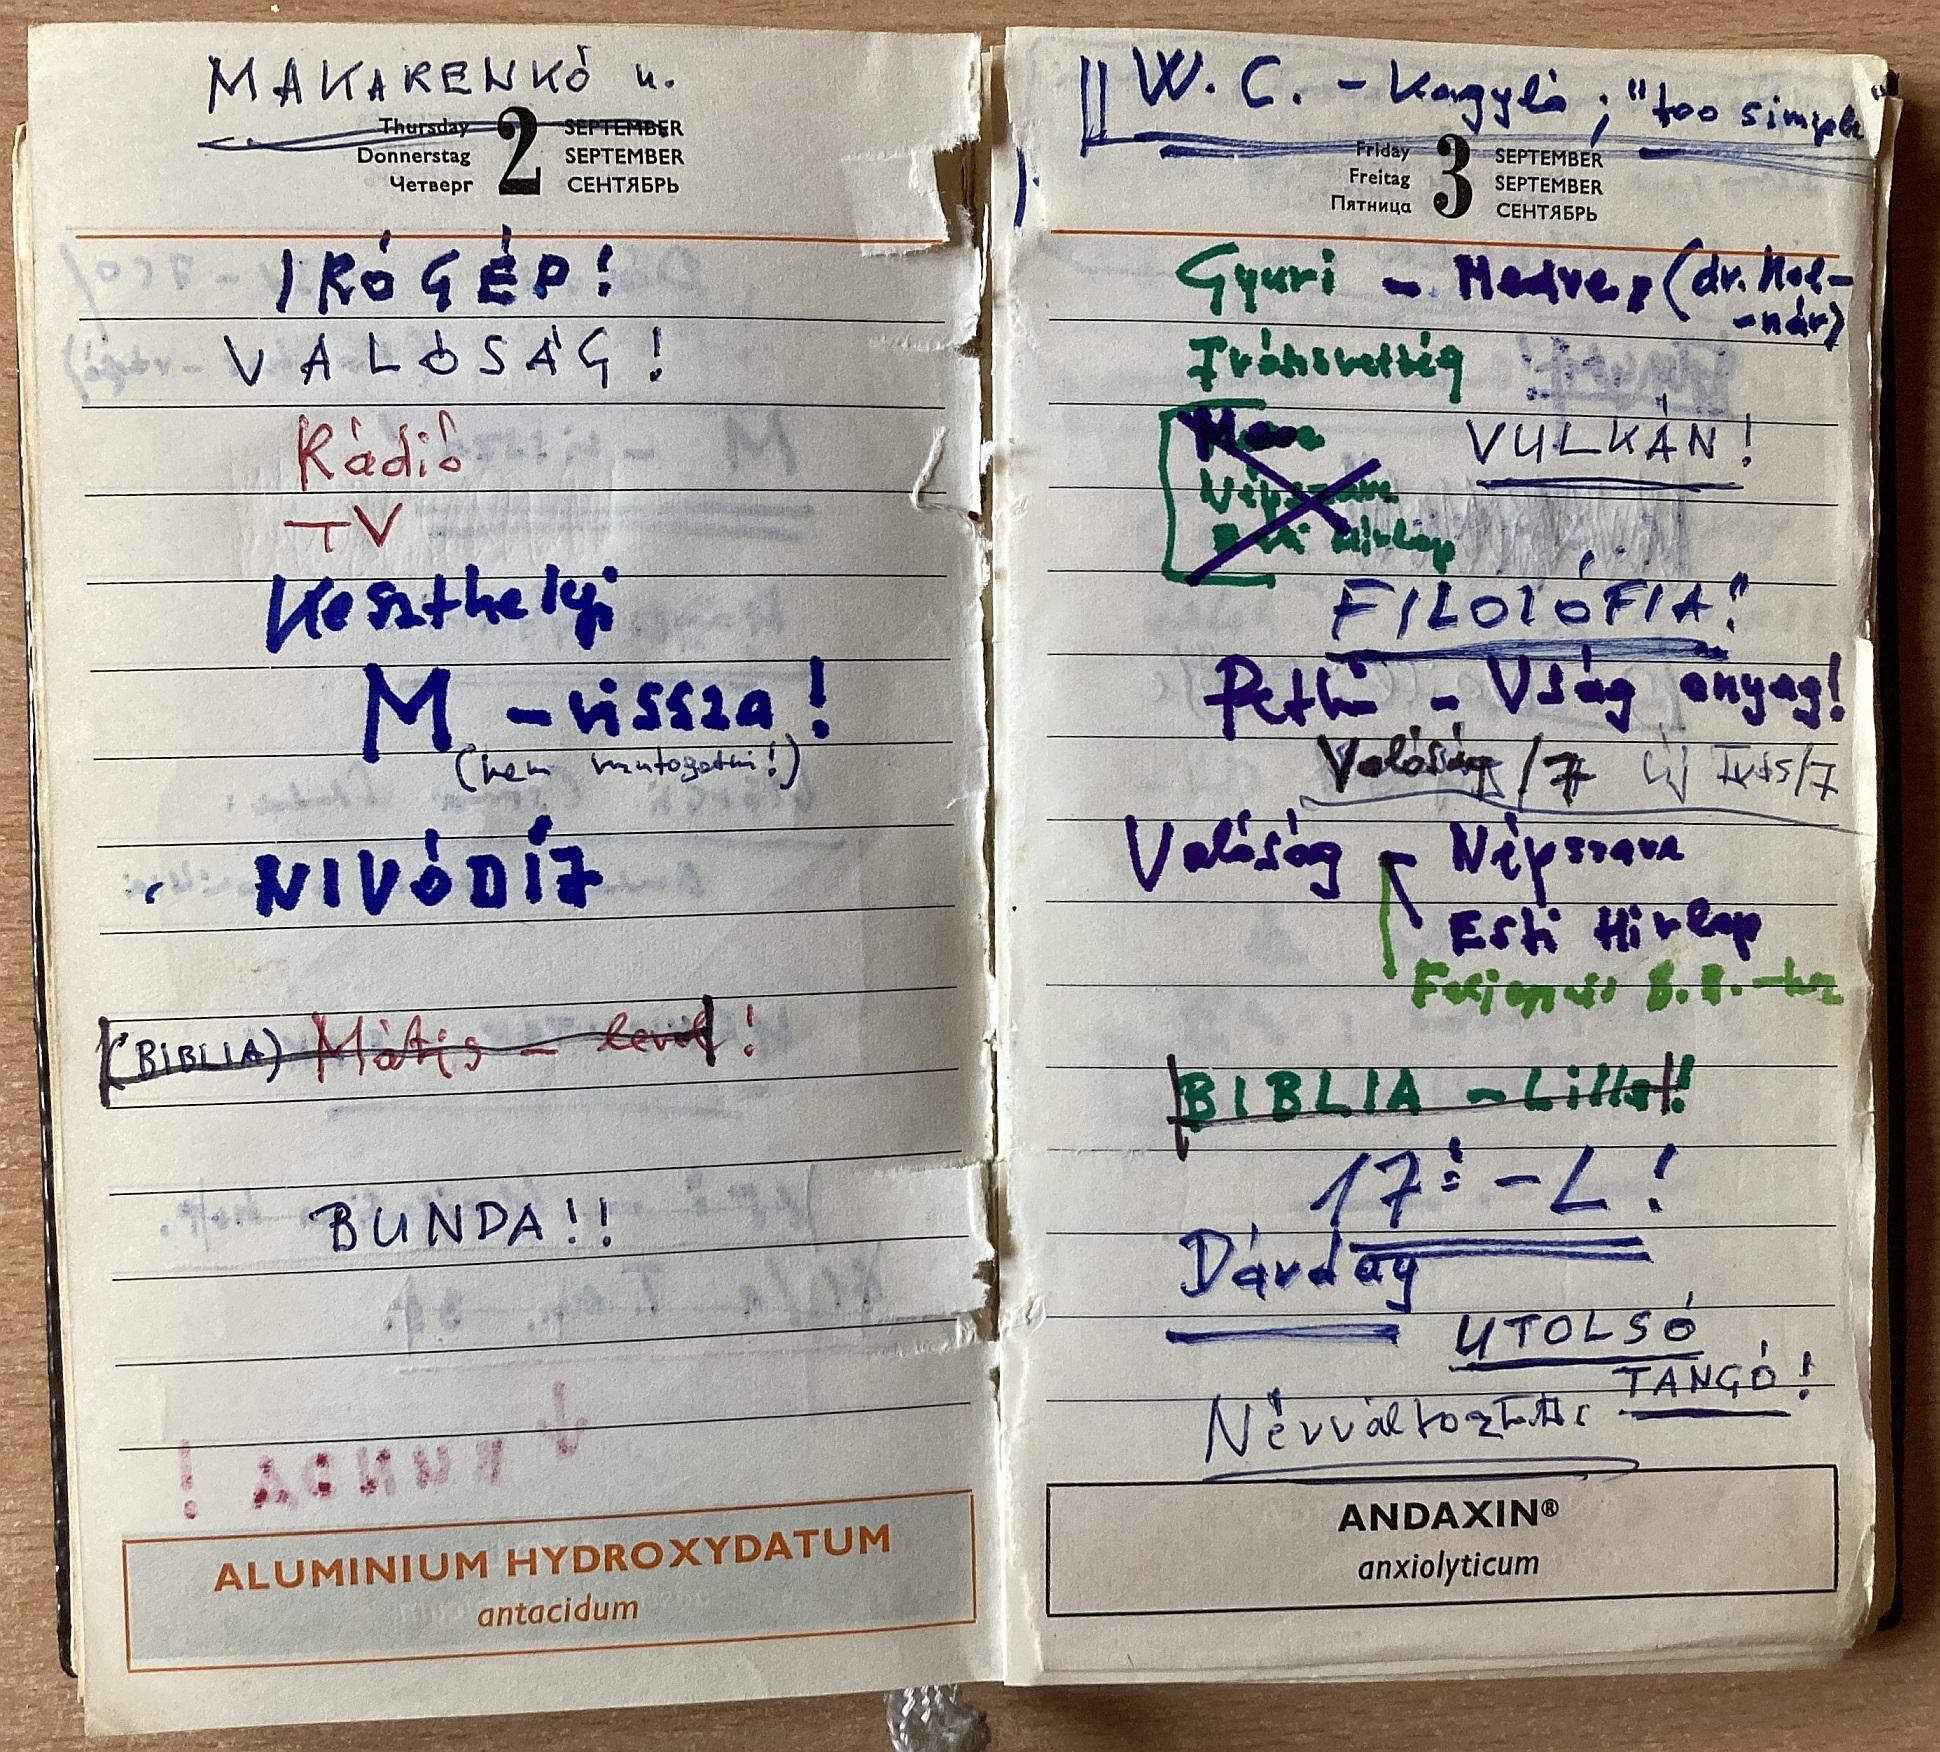 MAKARENKÓ u.
Thursday 2 SEPTEMBER
Donnerstag SEPTEMBER
Четверг СЕНТЯБРЬ
IRÓGÉP!
VALÓSÁG!
Rádió
TV
Keszthelyi
M - vissza!
(nem mutogatni!)
NIVÓDÍJ
(BIBLIA) Mátis - levél!
BUNDA!!
ALUMINIUM HYDROXYDATUM
antacidum
W. C. - Kagyló; "too simple"
Friday 3 SEPTEMBER
Freitag SEPTEMBER
Пятница СЕНТЯБРЬ
Gyuri - Medve, (dr. Mol-
-nár)
Irószövetség
VULKÁN!
Népszava
Esti Hirlap
FILOZÓFIA!
Pethő - Vság anyag!
Valóság/7 Új Irás/7
Valóság - Népszava
Esti Hirlap
BIBLIA - Lilla!
17 - L!
Dárday
UTOLSÓ
TANGÓ!
Névváltoztatás
ANDAXIN®
anxiolyticum